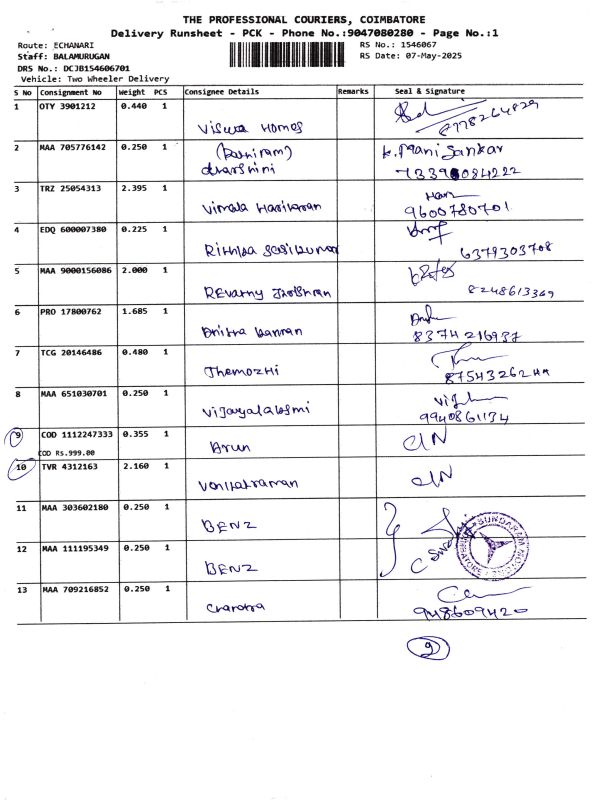 THE PROFESSIONAL COURIERS, COIMBATORE
Delivery Runsheet - PCK - Phone No.:9047080280 - Page No.:1
Route: ECHANARI
RS No.: 1546067
Staff: BALAMURUGAN
RS Date: 07-May-2025
DRS No.: DCJB154606701
Vehicle: Two Wheeler Delivery
S No Consignment No Weight PCS Consignee Details Remarks Seal & Signature
1 OTY 3901212 0.440 1
Viswa Homes
2 MAA 705776142 0.250 1 K. Mani Sankar
dharshini
3 TRZ 25054313 2.395 1
Vimala Hariharan 9600780701
4 EDQ 600007380 0.225 1
6379303708
5 MAA 9000156086 2.000 1
8248613369
6 PRO 17800762 1.685 1
8374216937
7 TCG 20146486 0.480 1
Themozhi
8 MAA 651030701 0.250 1
Vijayalakshmi 9940861134
9 COD 1112247333 0.355 1
COD Rs.999.00 Arun
10 TVR 4312163 2.160 1
11 MAA 303602180 0.250 1
BENZ
SUNDARAM
12 MAA 111195349 0.250 1
BENZ
13 MAA 709216852 0.250 1
948609420
9